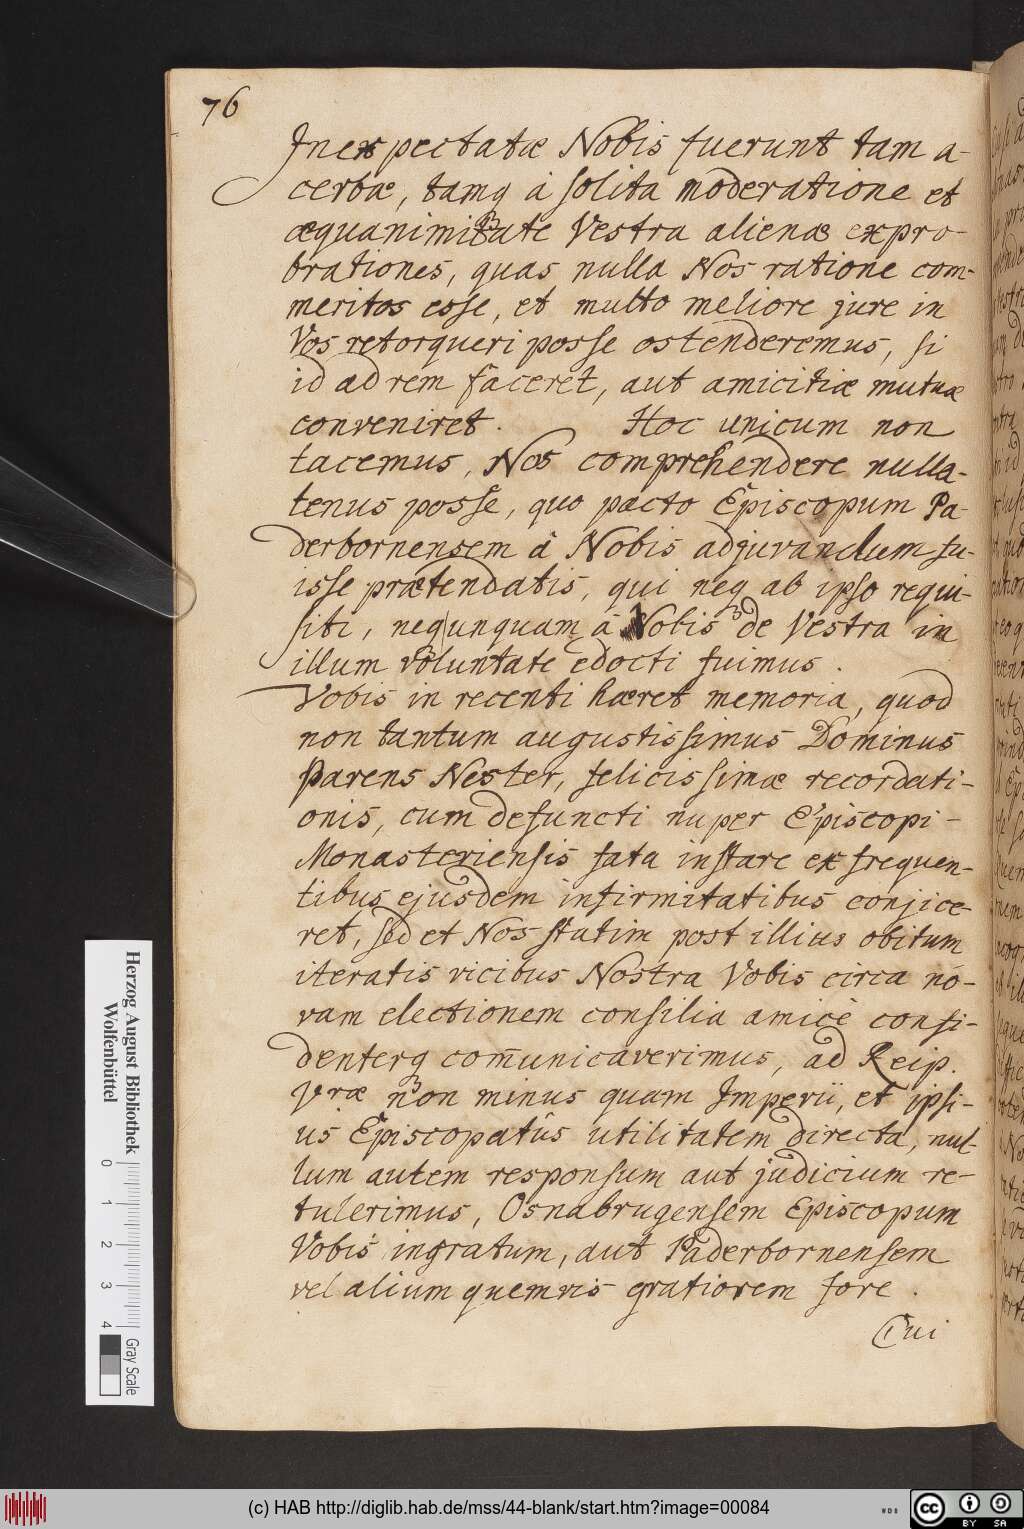 76
Inexpectatæ Nobis fuerunt tam a-
cerbæ, tamq à solita moderatione et
æquanimitate Vestra alienæ expro-
brationes, quas nulla Nos ratione com-
meritos esse, et multo meliore jure in
Vos retorqueri posse ostenderemus, si
id ad rem faceret, aut amicitiæ mutuæ
conveniret. Hoc unicum non
tacemus, Nos comprehendere nulla-
tenus posse, quo pacto Episcopum Pa-
derbornensem à Nobis adjuvandum fu-
isse prætendatis, qui neq ab ipso requi-
siti, neq unquam à Nobis de Vestra in
illum voluntate edocti fuimus.
Vobis in recenti hæret memoria, quod
non tantum augustissimus Dominus
Parens Noster, felicissimæ recordati-
onis, cum defuncti nuper Episcopi
Monasteriensis fata instare ex frequen-
tibus ejusdem infirmitatibus conjice-
ret, sed et Nos statim post illius obitum
iteratis vicibus Nostra Vobis circa no-
vam electionem consilia amicè consi-
denterq com̄unicaverimus, ad Reip.
Vræ non minus quam Imperii, et ipsi-
us Episcopatûs utilitatem directa, nul-
lum autem responsum aut judicium re-
tulerimus, Osnabrugensem Episcopum
Vobis ingratum, aut Paderbornensem
vel alium quemvis gratiorem fore.
Cui
Herzog August Bibliothek
Wolfenbüttel
0 1 2 3 4
Gray Scale
(c) HAB http://diglib.hab.de/mss/44-blank/start.htm?image=00084
WDB
cc BY SA